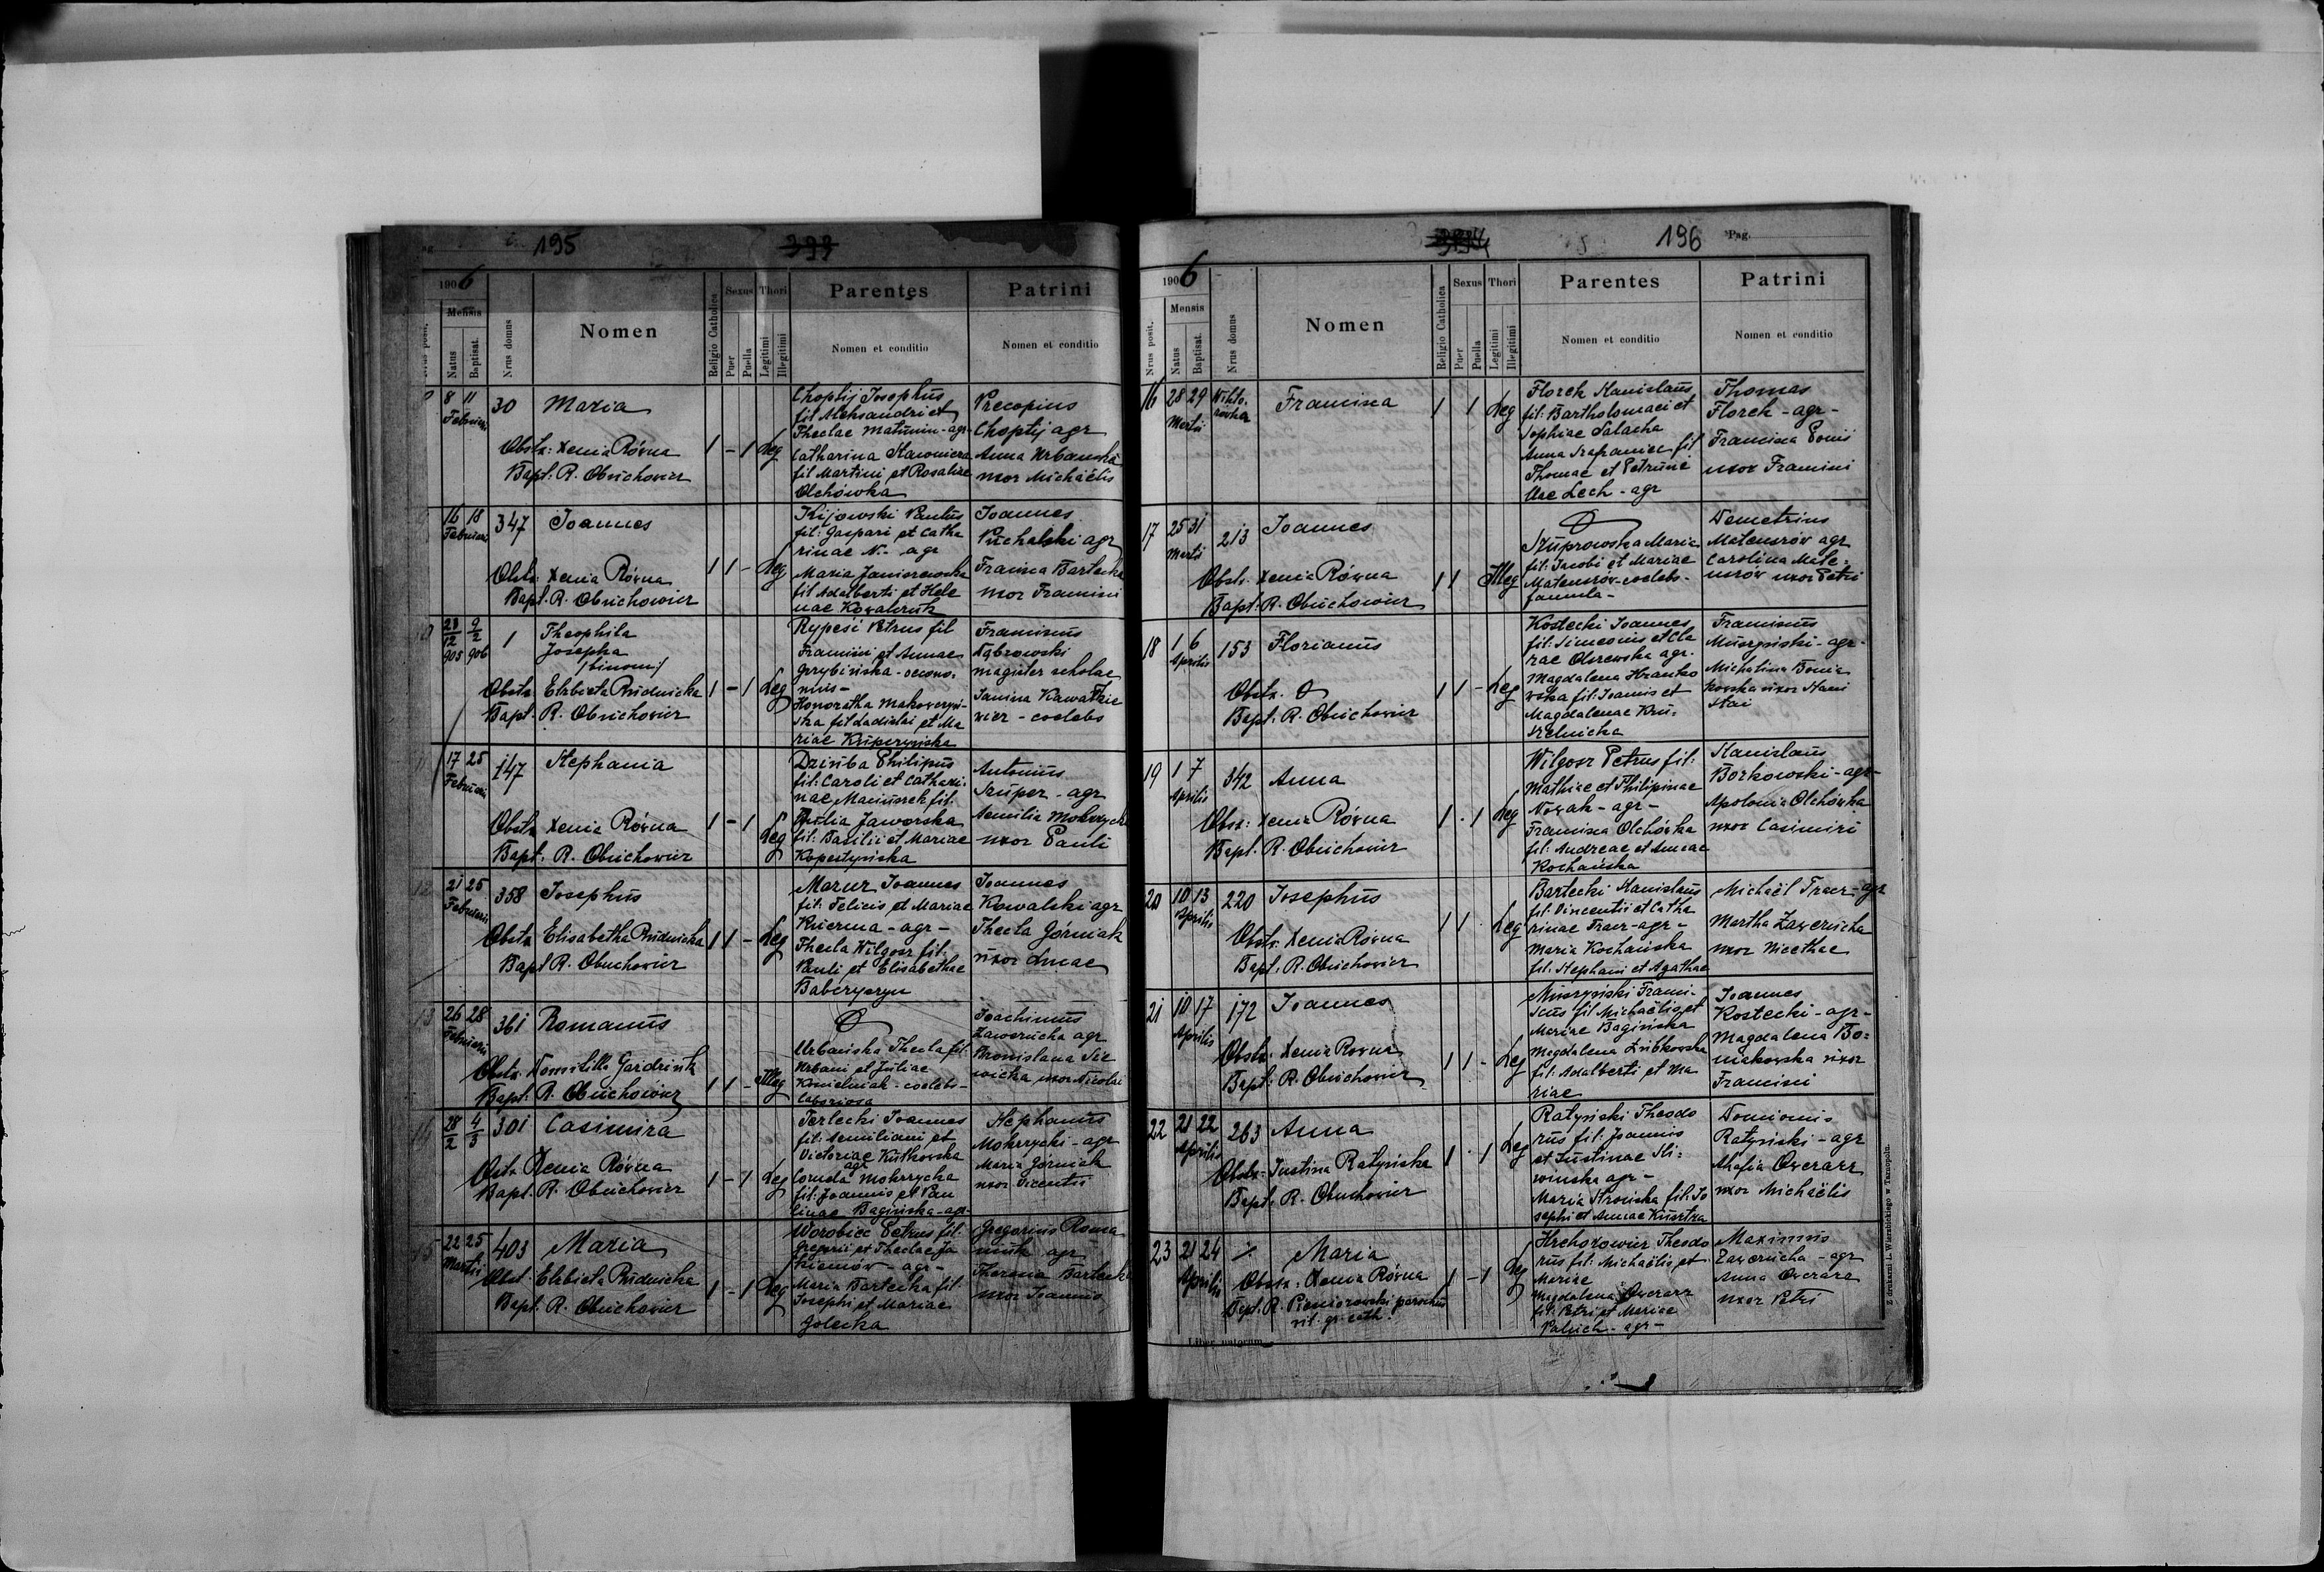 195
393
1906
Mensis
Natus
Baptisat.
Nrus domus
Nomen
Religio Catholica
Sexus
Puer
Puella
Thori
Legitimi
Illegitimi
Parentes
Nomen et conditio
Patrini
Nomen et conditio
8 11
30 Maria
Obstx: Xenia Równa
Bapt: R. Obuchowicz
1 - 1 Leg
Choptij Josephus
fil Aleksandri et
Theclae - agr -
Catharina
fil Martini et Rosaliae
Olchówka
Procopius
Choptij agr
Anna Urbańska
uxor Michaëlis
16 18
Februarii
347 Joannes
Obstx: Xenia Równa
Bapt. R. Obuchowicz
1 1 - Leg
Kijowski Paulus
fil: Gaspari et Catha
rinae N. - agr
Maria Janiszewska
fil Adalberti et Hele
nae Kowalczuk
Joannes
Puchalski agr
Franca Bartecka
uxor Francisci
28/12 905 9/2 906
1 Theophila
Josepha
/binom/
Obstx Elzbieta Rudnicka
Bapt. R. Obuchowicz
1 - 1 Leg
Rypeść Petrus fil
Francisci et Annae
Grzybińska - oecono-
mus -
Honoratha
ska fil Ladislai et Ma
riae Krupczyńska
Franciscus
Dąbrowski
magister scholae
Janina
wicz - coelebs
17 25
Februarii
147 Stephania
Obstx Xenia Równa
Bapt. R. Obuchowicz
1 - 1 Leg
Dziuba Philipus
fil: Caroli et Cathari-
nae fil:
Julia Jaworska
fil: Basilii et Mariae
Kopestyńska
Antonius
Szuper - agr
Aemilia
uxor Pauli
12 21 25
Februarii
358 Josephus
Obstx Elisabetha Rudnicka
Bapt R. Obuchowicz
1 1 - Leg
Mazur Joannes
fil: Felicis et Mariae
Kuczma - agr -
Thecla Wilgosz fil:
Pauli et Elisabethae
Babczyszyn
Joannes
Kowalski agr
Thecla Górniak
uxor Lucae
13 26 28
Februarii
361 Romanus
Obstx
Bapt: R. Obuchowicz
1 1 - Illeg
Urbańska Thecla fil
Urbani et Juliae
coelebs -
laboriosa
Joachimus
Zawerucha agr
Bronislava
uxor Nicolai
14 28/2 4/3
301 Casimira
Obstx Xenia Równa
Bapt. R. Obuchowicz
1 - 1 Leg
Terlecki Joannes
fil: Aemiliani et
Victoriae Kutkowska
agr
Mokrzycka
fil: Joannis et Pau
linae Bagińska - agr -
Stephanus
Mokrzycki - agr
Maria Górniak
uxor Vicentii
15 22 25
Martii
403 Maria
Obst. Elzbieta Rudnicka
Bapt. R. Obuchowicz
1 - 1 Leg
Worobiec Petrus fil:
Gregorii et Theclae Ja
kiemów - agr -
Maria Bartecka fil:
Josephi et Mariae
Golecka
Gregorius Roma
niuk agr
Theresia Bartecka
uxor Joannis
196 Pag.
1906
Nrus posit.
Mensis
Natus
Baptisat.
Nrus domus
Nomen
Religio Catholica
Sexus
Puer
Puella
Thori
Legitimi
Illegitimi
Parentes
Nomen et conditio
Patrini
Nomen et conditio
16 28 29
Martii
Wikto-
rówka
Francisca
1 1 Leg
Florek Stanislaus
fil: Bartholomaei et
Sophiae Salacha
Anna fil
Thomae et Petrune
llae Lech - agr
Thomas
Florek - agr -
Francisca
uxor Francisci
17 25 31
Martii
213 Joannes
Obstx. Xenia Równa
Bapt. R. Obuchowicz
1 1 Illeg
Szuprowska Maria
fil: Jacobi et Mariae
Matenszów - coelebs -
famula -
Demetrius
Matenszów agr
Carolina Mate-
nszów uxor Petri
18 1 6
Aprilis
153 Florianus
Obstx.
Bapt. R. Obuchowicz
1 1 - Leg
Kostecki Joannes
fil: Simeonis et Cla
rae Olszewska agr.
Magdalena Hranko
wska fil: Joannis et
Magdalenae Kru-
szelnicka
Franciscus
Muszyński - agr -
Michalina Boma
kowska uxor Stani
slai
19 1 7
Aprilis
342 Anna
Obsx: Xenia Równa
Bapt. R. Obuchowicz
1 . 1 Leg
Wilgosz Petrus fil:
Mathiae et Philipinae
Nowak - agr -
Francisca Olchówka
fil: Andreae et Annae
Kochańska
Stanislaus
Borkowski - agr -
Apolonia Olchówka
uxor Casimiri
20 10 13
Aprilis
220 Josephus
Obstx. Xenia Równa
Bapt. R. Obuchowicz
1 1 . Leg
Bartecki Stanislaus
fil: Vincentii et Catha
rinae Tracz - agr -
Maria Kochańska
fil: Stephani et Agathae
Michaël Tracz - agr
Martha Zawerucha
uxor Nicethae
21 10 17
Aprilis
172 Joannes
Obstx: Xenia Rowna
Bapt: R. Obuchowicz
1 1 - Leg
Muszyński Franci-
scus fil Michaëlis et
Mariae Bagińska
Magdalena
fil: Adalberti et Ma
riae
Joannes
Kostecki - agr -
Magdalena Bo-
makowska uxor
Francisci
22 21 22
Aprilis
263 Anna
Obstx. Justina Ratyńska
Bapt. R. Obuchowicz
1 . 1 Leg
Ratyński Theodo
rus fil: Joannis
et Justinae Sli-
winska agr -
Maria fil: Jo
sephi et Annae
Dionisius
Ratyński - agr
Ahafia Owczarz
uxor Michaëlis
23 21 24
Aprilis
Maria
Obstx: Xenia Równa
Bapt. R. parochus
rit. gr. cath.
1 - 1 Leg
Hrehorowicz Theodo
rus fil: Michaëlis et
Mariae
Magdalena Owczarz
fil: Petri et Mariae
agr -
Maximus
Zawerucha - agr
Anna Owczarz
uxor Petri
Liber natorum
Z drukarni L. Wierzbickiego w Tarnopolu.